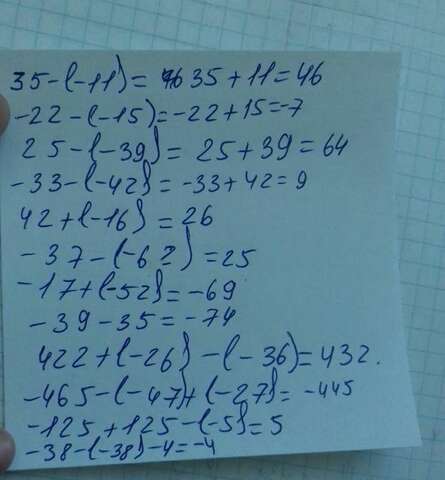 35-(-11)= 46 35+11=46
-22-(-15)=-22+15=-7
25-(-39)= 25+39=64
-33-(-42)=-33+42=9
42+(-16)=26
-37-(-62)=25
-17+(-52)=-69
-39-35=-74
422+(-26)-(-36)=432.
-465-(-47)+(-27)=-445
-125+125-(-5)=5
-38-(-38)-4=-4